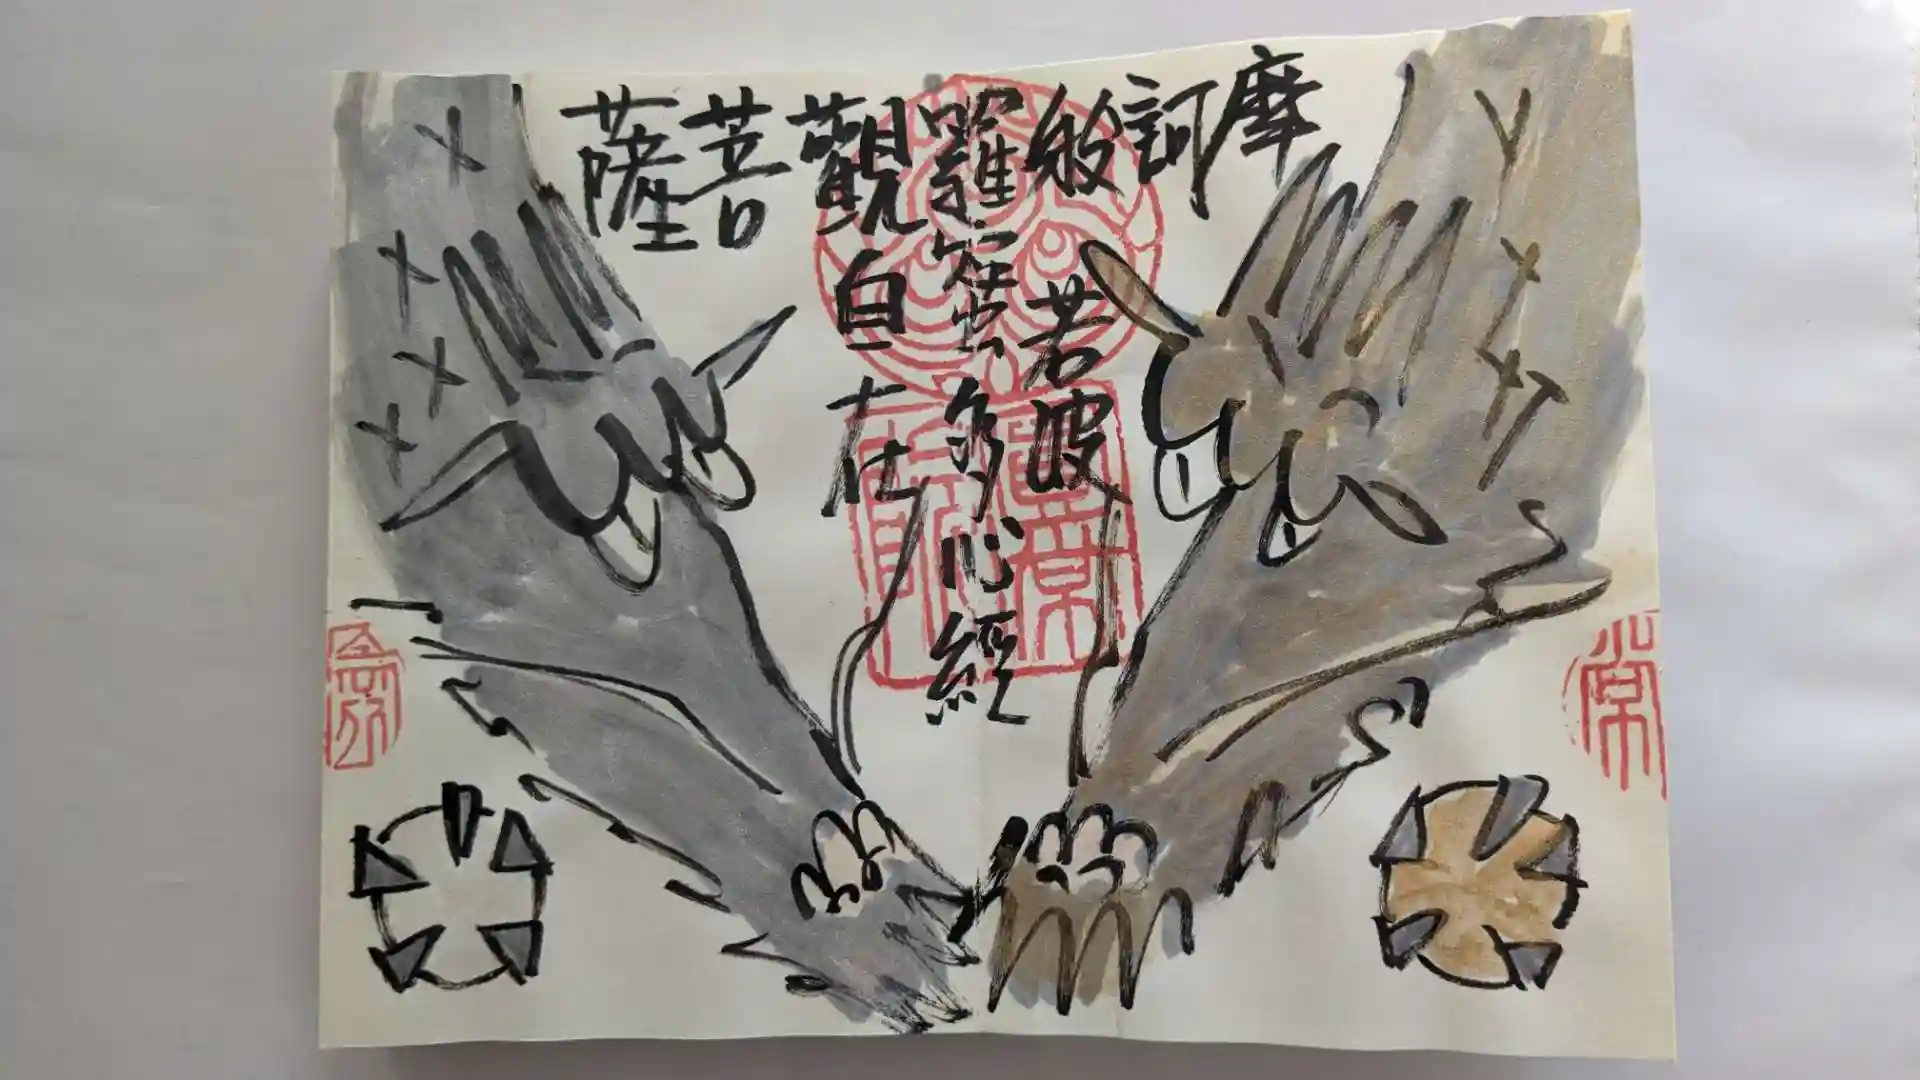 摩
訶
般若波
羅蜜多心經
觀自在
菩
薩
常